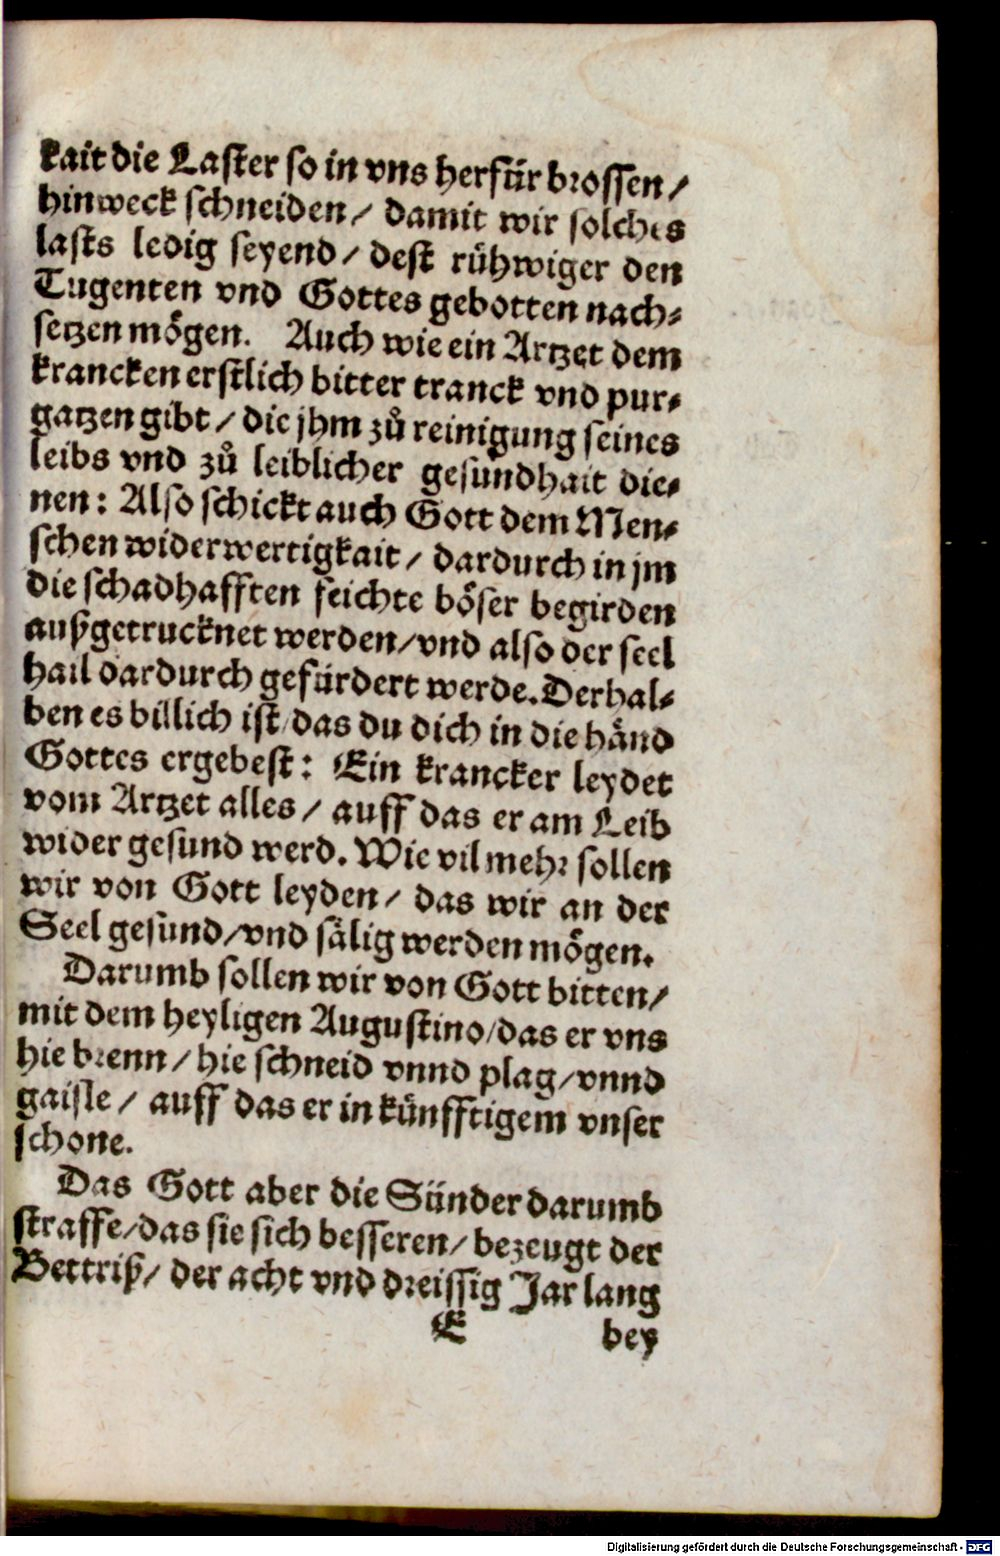 kait die Laster so in vns herfür brossen /
hinweck schneiden / damit wir solches
lasts ledig seyend / dest rühwiger den
Tugenten vnd Gottes gebotten nach⸗
setzen mögen. Auch wie ein Artzet dem
krancken erstlich bitter tranck vnd pur⸗
gatzen gibt / die jhm zů reinigung seines
leibs vnd zů leiblicher gesundhait die⸗
nen: Also schickt auch Gott dem Men⸗
schen widerwertigkait / dardurch in jm
die schadhafften feichte böser begirden
außgetrucknet werden / vnd also der seel
hail dardurch gefürdert werde. Derhal⸗
ben es billich ist / das du dich in die händ
Gottes ergebest: Ein krancker leydet
vom Artzet alles / auff das er am Leib
wider gesund werd. Wie vil mehr sollen
wir von Gott leyden / das wir an der
Seel gesund / vnd sälig werden mögen.
Darumb sollen wir von Gott bitten /
mit dem heyligen Augustino / das er vns
hie brenn / hie schneid vnnd plag / vnnd
gaisle / auff das er in künfftigem vnser
schone.
Das Gott aber die Sünder darumb
straffe / das sie sich besseren / bezeugt der
Bettriß / der acht vnd dreissig Jar lang
E bey
Digitalisierung gefördert durch die Deutsche Forschungsgemeinschaft - DFG